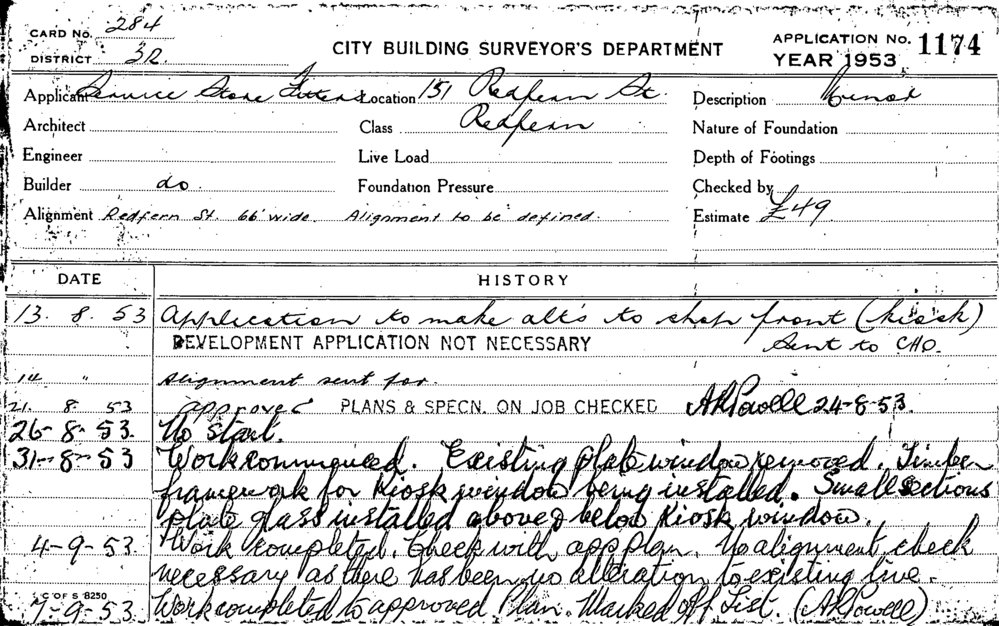 CARD No. 284
DISTRICT 32.
CITY BUILDING SURVEYOR'S DEPARTMENT
APPLICATION No. 1174
YEAR 1953
Applicant Service Store Fitters Location 151 Redfern St. Description Minor
Architect Class Redfern Nature of Foundation
Engineer Live Load Depth of Footings
Builder do. Foundation Pressure Checked by
Alignment Redfern St. 66' wide. Alignment to be defined. Estimate £49
DATE HISTORY
13. 8. 53 Application to make alt's to shop front (kiosk)
DEVELOPMENT APPLICATION NOT NECESSARY Sent to CHO.
14 " Alignment sent for.
21. 8. 53 approved PLANS & SPECN. ON JOB CHECKED ARPowell 24-8-53.
26-8-53. No start.
31-8-53 Work commenced. Existing plate window removed. Timber
framework for Kiosk window being installed. Small sections
plate glass installed above & below Kiosk window.
4-9-53. Work completed. Check with app plan. No alignment check
necessary as there has been no alteration to existing line.
C OF S 8250
7-9-53. Work completed to approved Plan. Marked off List. (ARPowell)